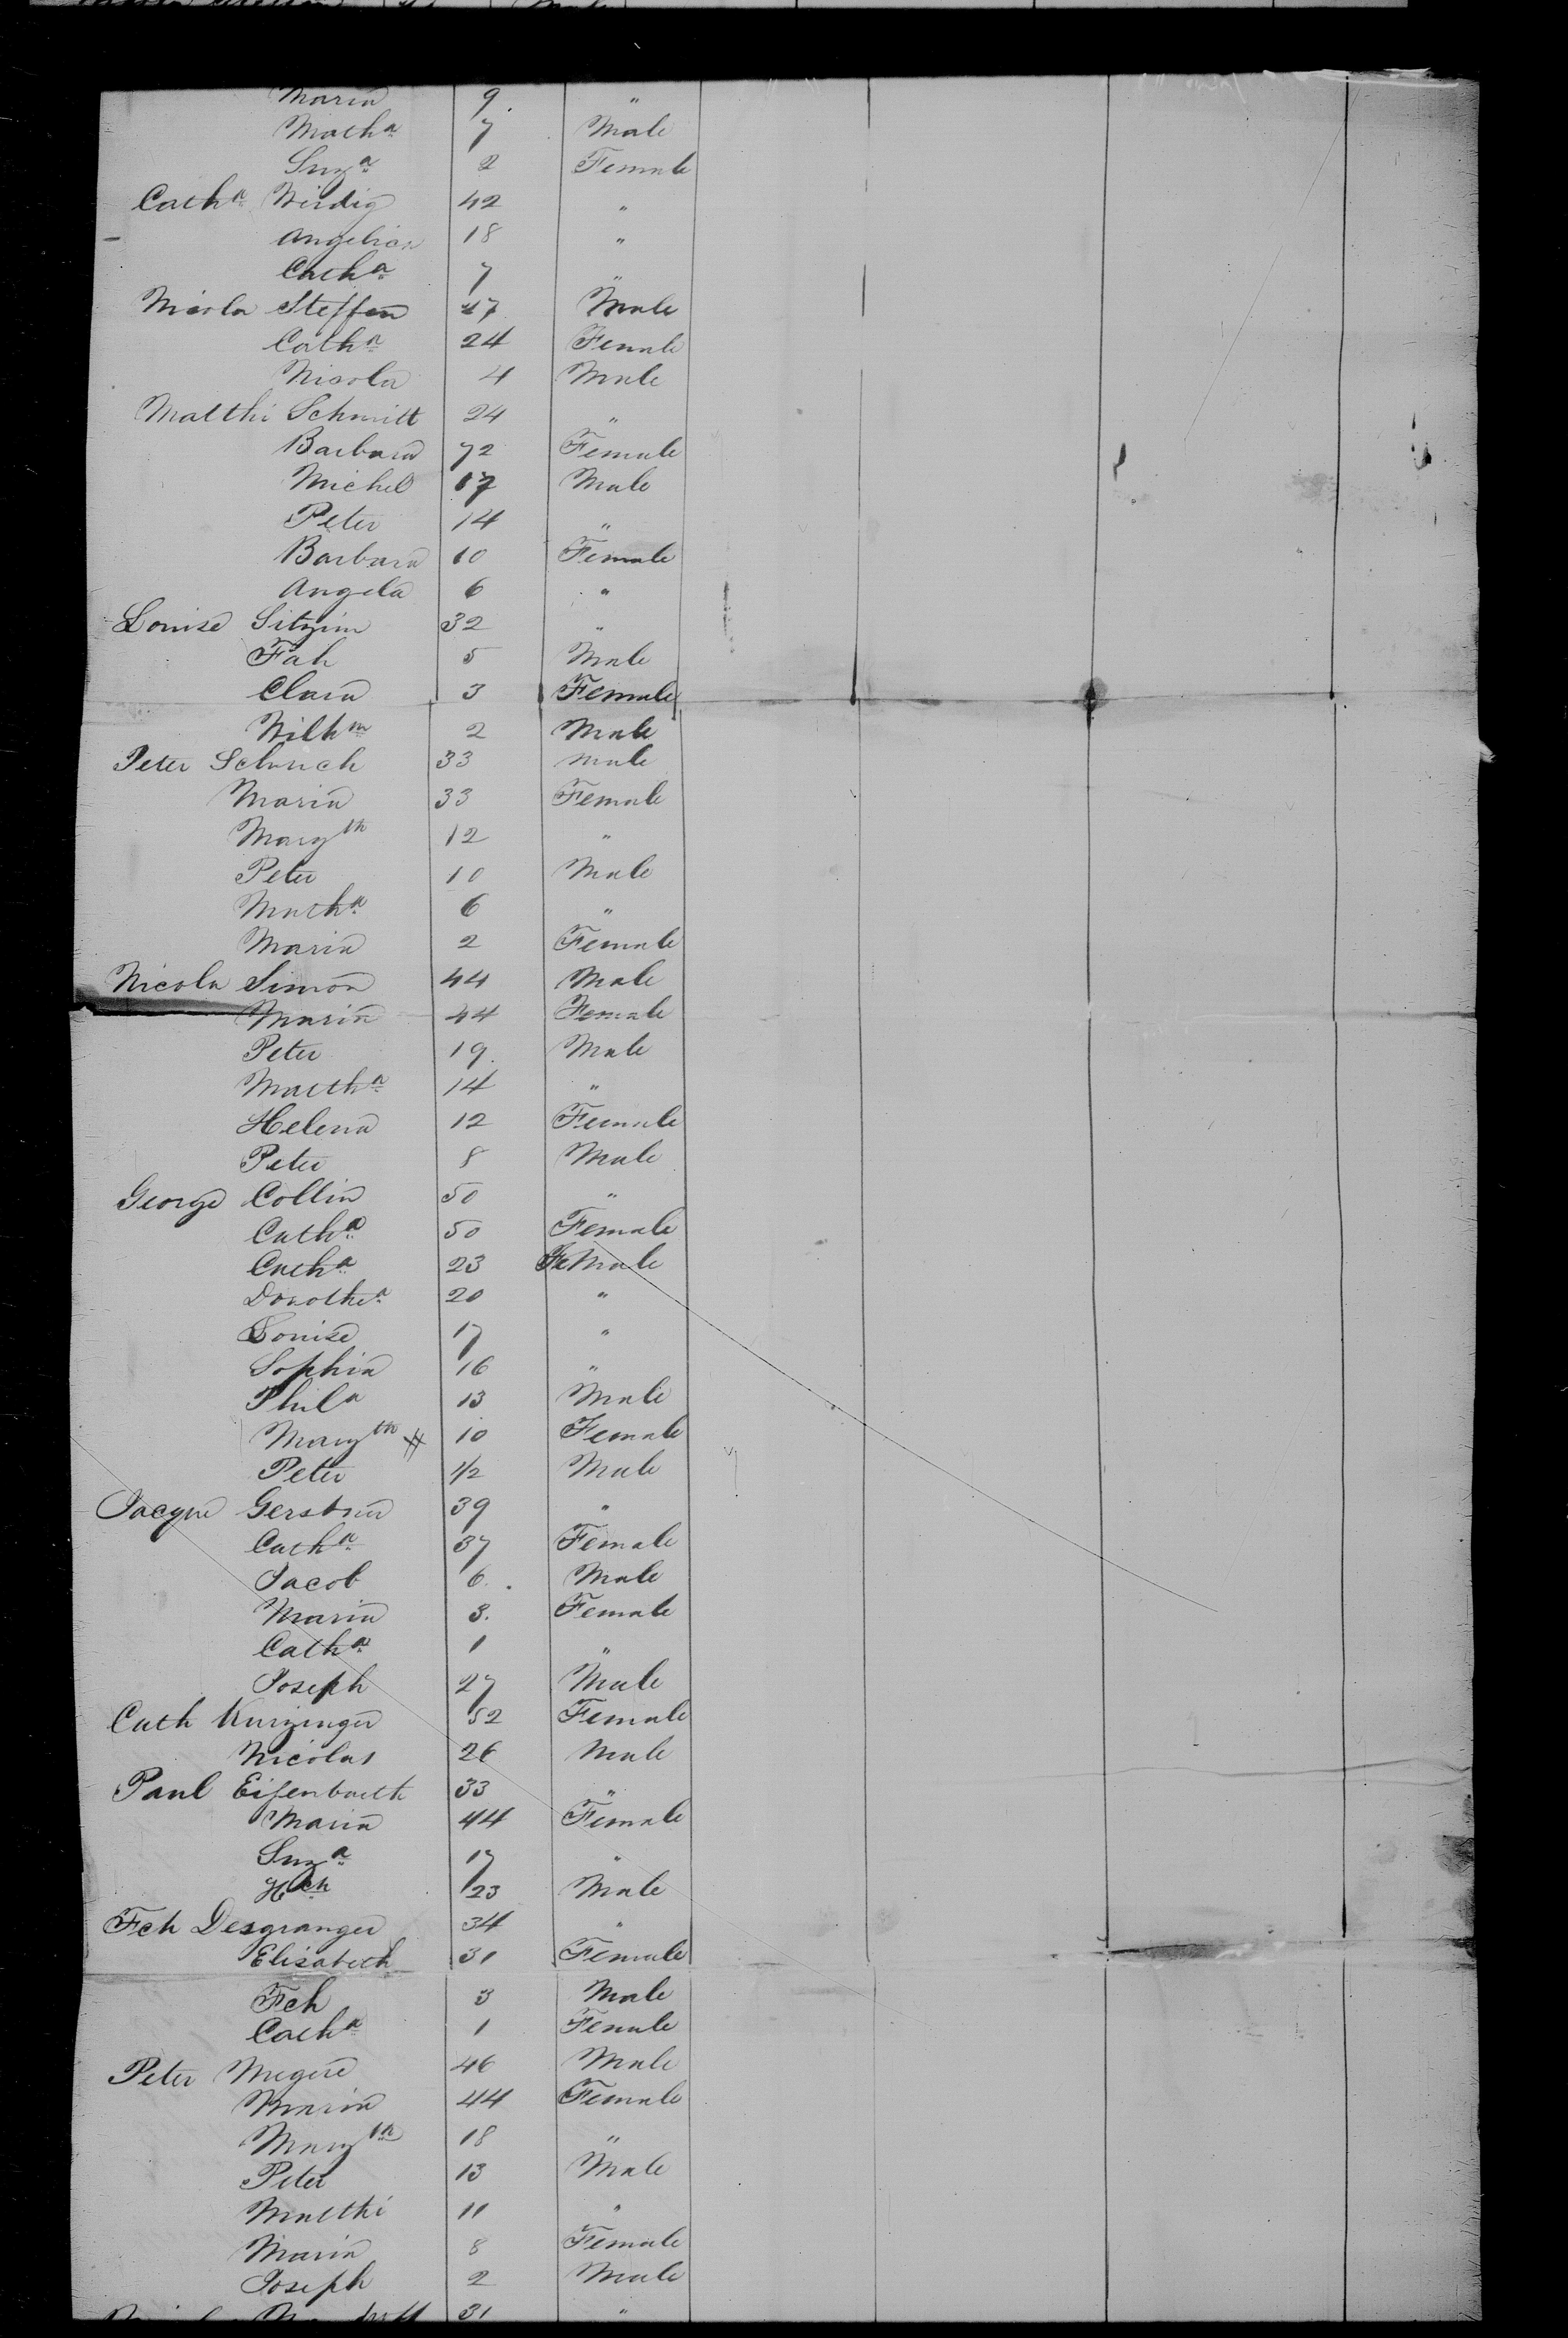 Maria 9 "
Math a 7 Male
Suz a 2 Female
Cath a Wirdig 42 "
Angelica 18 "
Cath a 7 "
Nicola Steffen 27 Male
Cath a 24 Female
Nicola 4 Male
Matthi Schmitt 24 "
Barbara 72 Female
Michel 17 Male
Peter 14 "
Barbara 10 Female
Angela 6 "
Louise Sitzim 32 "
Fah 5 Male
Clara 3 Female
Wilh m 2 Male
Peter Schuch 33 male
Maria 33 Female
Marg th 12 "
Peter 10 Male
Math a 6 "
Maria 2 Female
Nicola Simon 44 Male
Maria 44 Female
Peter 19 Male
Matth a 14 "
Helena 12 Female
Peter 8 Male
George Collin 50 "
Cath a 50 Female
Cath a 23 FeMale
Dorothe a 20 "
Louise 17 "
Sophia 16 "
Phil a 13 Male
Marg th # 10 Female
Peter 1/2 Male
Jacque Gerstner 39 "
Cath a 37 Female
Jacob 6 Male
Maria 3 Female
Cath a 1 "
Joseph 27 Male
Cath Kurzinger 52 Female
Nicolas 26 Male
Paul Eisenbarth 33 "
Maria 44 Female
Suz a 17 "
H ch 23 Male
Fch Desgranger 34 "
Elisabeth 31 Female
Fch 3 Male
Cath a 1 Female
Peter Megere 46 Male
Maria 44 Female
Marg th 18 "
Peter 13 Male
Matthi 11 "
Maria 8 Female
Joseph 2 Male
31 "